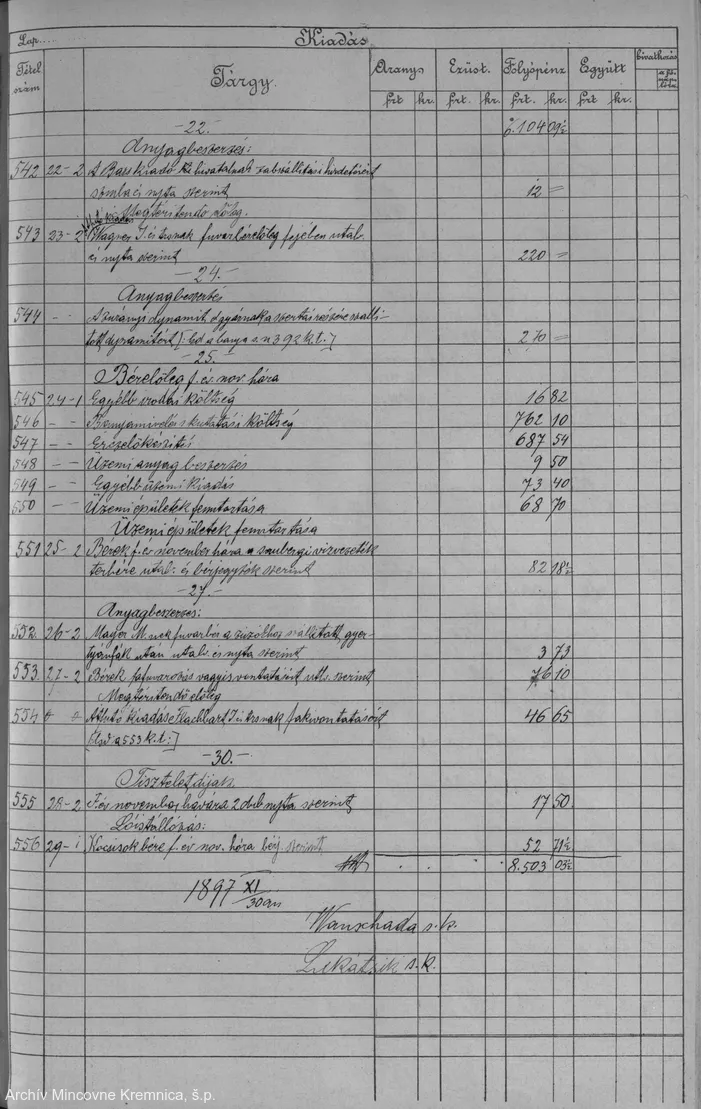 Lap..... Kiadás
Tétel szám Tárgy. Arany Ezüst. Folyópénz Együtt hivatkozás
frt kr. frt. kr. frt. kr. frt kr.
-22.- 6.104 09½
Anyagbeszerzés:
542 22-2 A Bars kiadó hivatalnak zabszállítási hirdetésért
számla és nyta szerint 12 =
Megtérítendő előleg.
543 23-2 Wagner J. és trsnak fuvarbérelőleg fejében utalv.
és nyta szerint 220 =
-24.-
Anyagbeszerzés
544 - - A zurányi dynamit gyárnak a szertár részére szállí-
tott dynamitért [: lsd a banya s.n 392 k.t. :] 270 =
-25.-
Bérelőleg f. év. nov. hóra
545 24-1 Egyébb irodai költség 16 82
546 - - Bányamívelés kutatási költség 762 10
547 - - Érczelőkészítés 687 54
548 - - Üzemi anyag beszerzés 9 50
549 - - Egyébb üzemi kiadás 73 40
550 - - Üzemi épületek fenntartása 68 70
Üzemi épületek fenntartása
551 25-2 Bérek f. év november hóra a vízvezeték
terhére utal: és bérjegyzék szerint 82 18½
-27.-
Anyagbeszerzés:
552. 26-2 Mayer M. nek fuvarbér a zúzókhoz szállított gyer-
tyánfák után utalv. és nyta szerint 3 73
553. 27-2 Bérek fafuvarozás vagyis vontatásért utlv. szerint 76 10
Megtérítendő előleg
554 Áthutó kiadás Flachbart J és trsnak fakivontatásért 46 65
[: lsd a 553 k.t. :]
-30.-
Tiszteletdíjak.
555 28-2 F. év november havára 2 drb nyta szerint 17 50
Lóistállózás:
556 29-1 Kocsisok bére f. év nov. hóra bérj. szerint 52 71½
8.503 03½
1897 XI/30 án
Wanschada s.k.
Lukatsik s.k.
Archív Mincovne Kremnica, š.p.